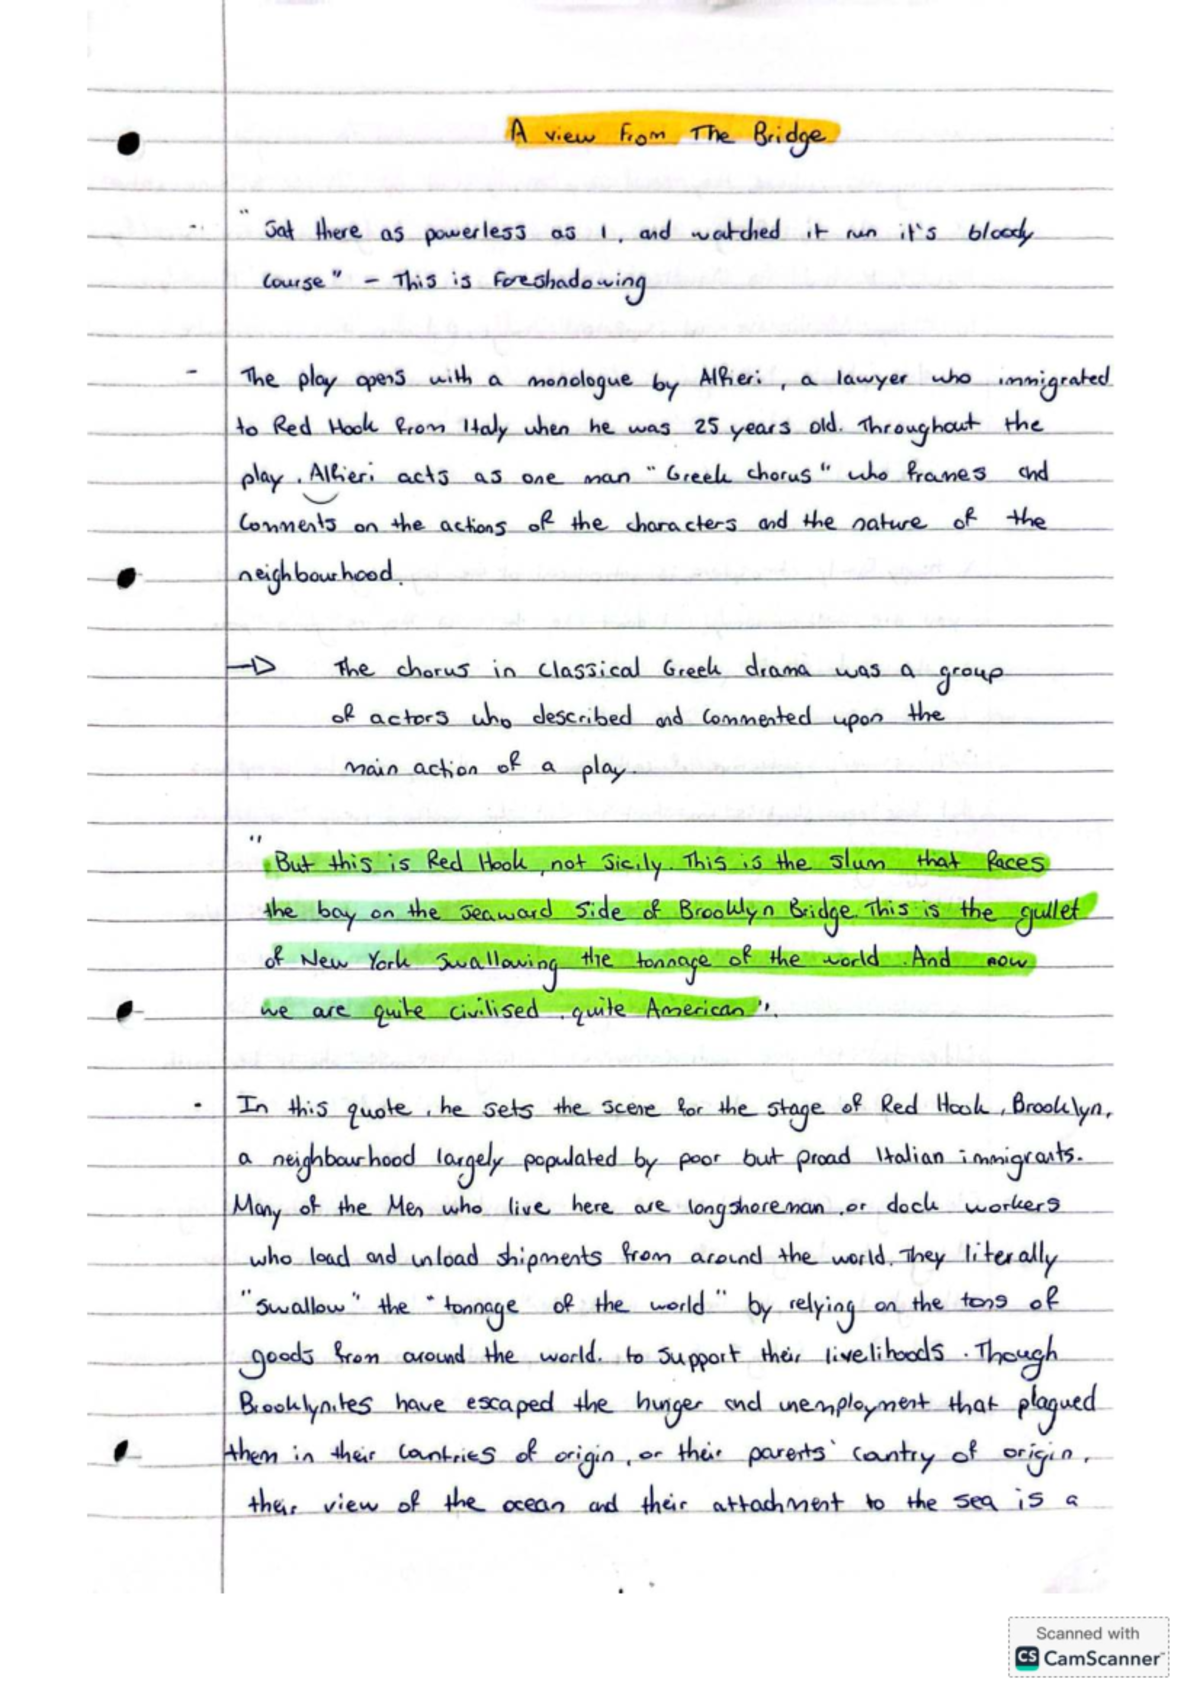 A view From The Bridge
"Sat there as powerless as I, and watched it run it's bloody
Course" – This is Foreshadowing
- The play opens with a monologue by Alfieri, a lawyer who immigrated
to Red Hook from Italy when he was 25 years old. Throughout the
play, Alfieri acts as one man "Greek chorus" who frames and
Comments on the actions of the characters and the nature of the
neighbourhood.
→ The chorus in Classical Greek drama was a group
of actors who described and commented upon the
main action of a play.
"But this is Red Hook, not Sicily. This is the slum that faces
the bay on the seaward side of Brooklyn Bridge. This is the gullet
of New York swallowing the tonnage of the world. And now
we are quite civilised, quite American".
- In this quote, he sets the scene for the stage of Red Hook, Brooklyn,
a neighbourhood largely populated by poor but proad Italian immigrants.
Many of the Men who live here are longshoreman, or dock workers
who load and unload shipments from around the world. They literally
"swallow" the "tonnage of the world" by relying on the tons of
goods from around the world. to support their livelihoods. Though
Brooklynites have escaped the hunger and unemployment that plagued
them in their countries of origin, or their parents' country of origin,
their view of the ocean and their attachment to the sea is a
Scanned with
CS CamScanner